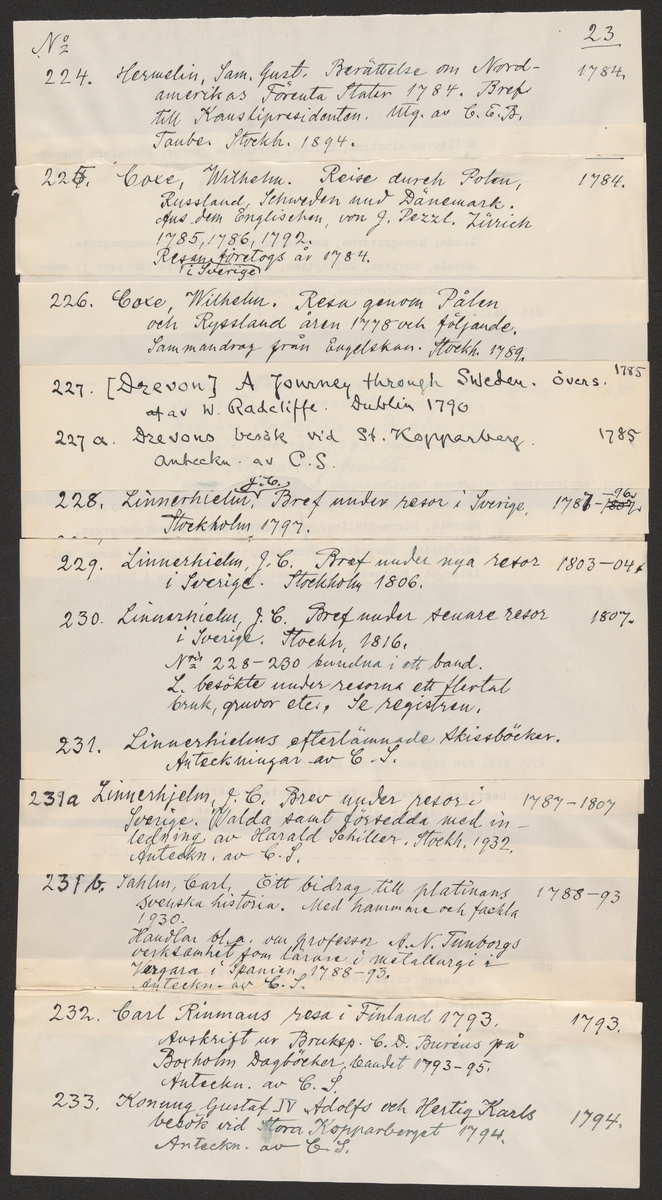 No 23
224. Hermelin, Sam. Gust. Berättelse om Nord- 1784.
amerikas Förenta Stater 1784. Bref
till Kanslipresidenten. Utg. av C. E. B.
Taube. Stockh. 1894.
225. Coxe, Wilhelm. Reise durch Polen, 1784.
Russland, Schweden und Dänemark.
Aus dem Englischen, von J. Pezzl. Zürich
1785, 1786, 1792.
Resan i Sverige företogs år 1784.
226. Coxe, Wilhelm. Resa genom Pålen
och Ryssland åren 1778 och följande.
Sammandrag från Engelskan. Stockh. 1789.
227. [Drevon] A Journey through Sweden. övers. 1785
av W. Radcliffe. Dublin 1790
227 a. Drevons besök vid St. Kopparberg. 1785
Anteckn. av C. S.
228. Linnerhielm, J. C. Bref under resor i Sverige, 1787-96.
Stockholm 1797.
229. Linnerhielm, J. C. Bref under nya resor 1803-04.
i Sverige. Stockholm 1806.
230. Linnerhielm, J. C. Bref under senare resor 1807.
i Sverige. Stockh. 1816.
Nris 228-230 bundna i ett band.
L. besökte under resorna ett flertal
bruk, gruvor etc. Se registren.
231. Linnerhielms efterlämnade skissböcker.
Anteckningar av C. S.
231a Linnerhjelm, J. C. Brev under resor i 1787-1807
Sverige. Valda samt försedda med in-
ledning av Harald Schiller. Stockh. 1932.
Anteckn. av C. S.
231 b. Sahlin, Carl. Ett bidrag till platinans 1788-93
svenska historia. Med hammare och fackla
1930.
Handlar bl. a. om professor A. N. Tunborgs
verksamhet som lärare i metallurgi i
Vergara i Spanien 1788-93.
Anteckn. av C. S.
232. Carl Rinmans resa i Finland 1793. 1793.
Avskrift ur Bruksp. C. D. Buréus på
Boxholm Dagböcker, bandet 1793-95.
Anteckn. av C. S.
233. Konung Gustaf IV Adolfs och Hertig Karls 1794.
besök vid Stora Kopparberget 1794.
Anteckn. av C. S.